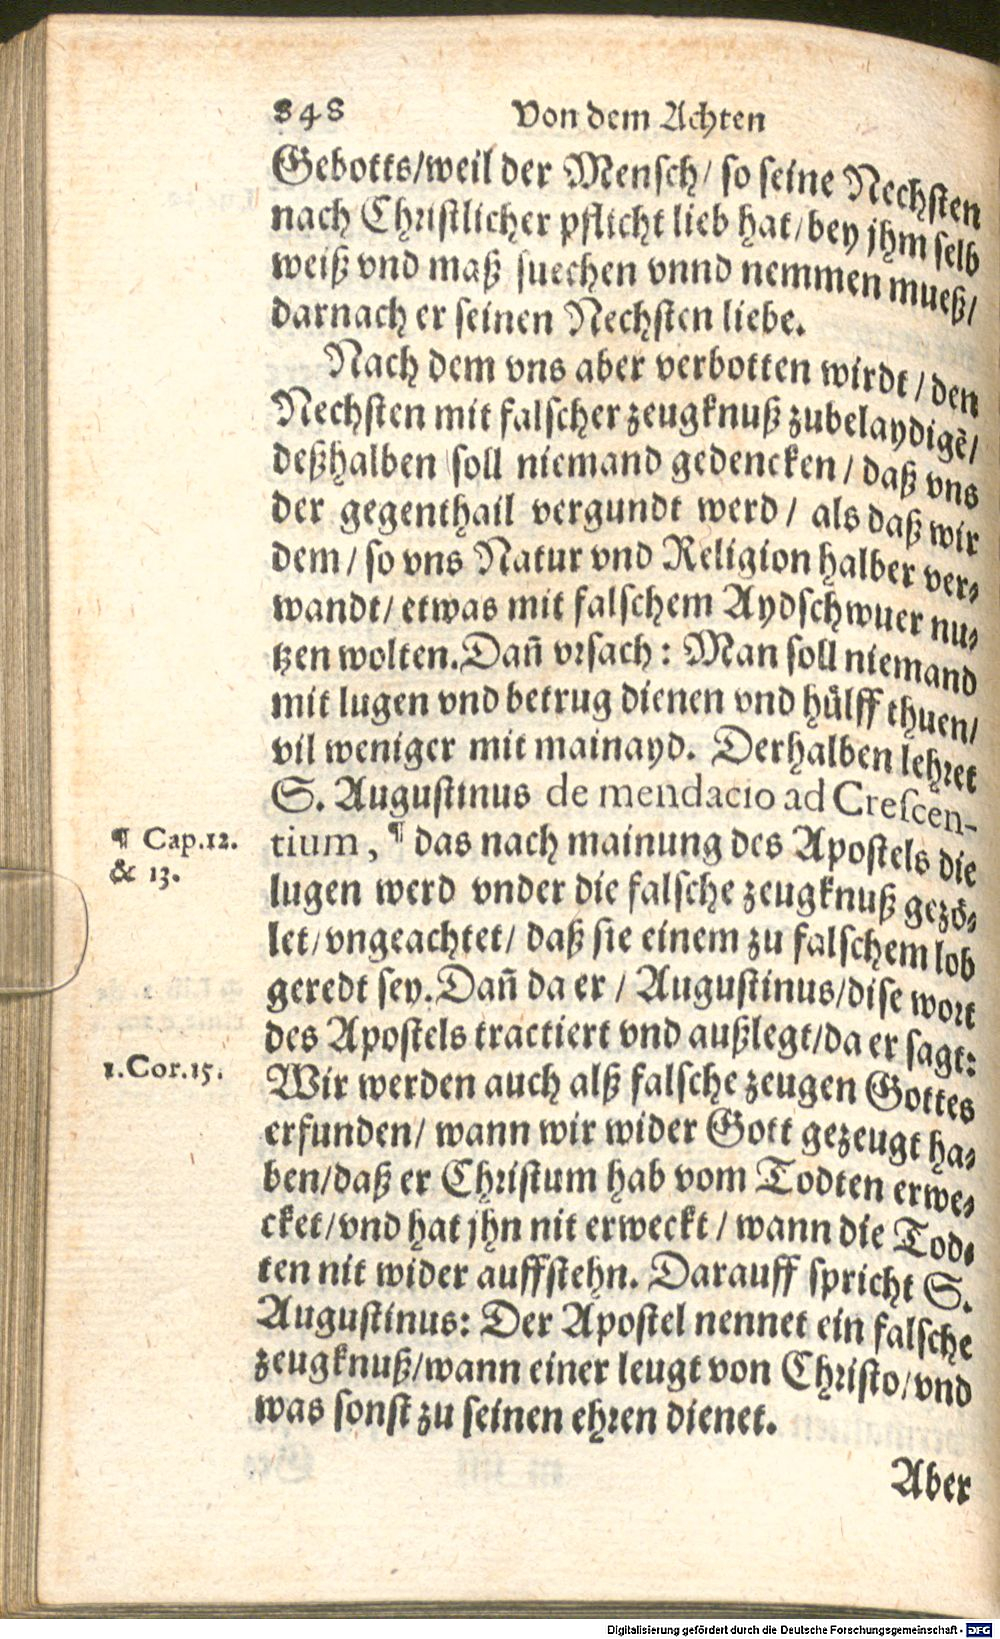 848 Von dem Achten
Gebotts/weil der Mensch/ so seine Nechsten
nach Christlicher pflicht lieb hat/bey jhm selb
weiß vnd maß suechen vnnd nemmen mueß/
darnach er seinen Nechsten liebe.
Nach dem vns aber verbotten wirdt/den
Nechsten mit falscher zeugknuß zubelaydigẽ/
deßhalben soll niemand gedencken/daß vns
der gegenthail vergundt werd/ als daß wir
dem/so vns Natur vnd Religion halber ver-
wandt/etwas mit falschem Aydschwuer nu-
tzen wolten. Dañ vrsach: Man soll niemand
mit lugen vnd betrug dienen vnd hůlff thuen/
vil weniger mit mainayd. Derhalben lehret
S. Augustinus de mendacio ad Crescen-
¶ Cap.12.
& 13.
tium, ¶ das nach mainung des Apostels die
lugen werd vnder die falsche zeugknuß gezö-
let/vngeachtet/ daß sie einem zu falschem lob
geredt sey. Dañ da er / Augustinus/dise wort
des Apostels tractiert vnd außlegt/da er sagt:
1.Cor.15.
Wir werden auch alß falsche zeugen Gottes
erfunden/ wann wir wider Gott gezeugt ha-
ben/daß er Christum hab vom Todten erwe-
cket/vnd hat jhn nit erweckt / wann die Tod-
ten nit wider auffstehn. Darauff spricht S.
Augustinus: Der Apostel nennet ein falsche
zeugknuß/wann einer leugt von Christo/vnd
was sonst zu seinen ehren dienet.
Aber
Digitalisierung gefördert durch die Deutsche Forschungsgemeinschaft - DFG